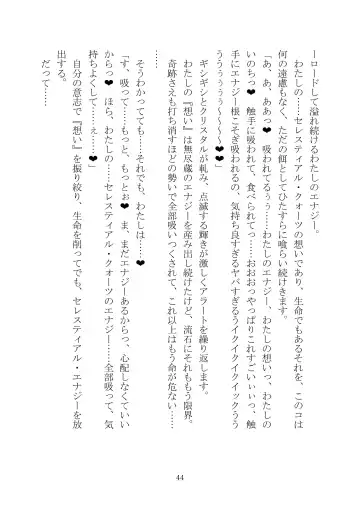 ーロードして溢れ続けるわたしのエナジー。
　わたしの……セレスティアル・クォーツの想いであり、生命でもあるそれを、このコは
何の遠慮もなく、ただの餌としてひたすらに喰らい続けきます。
「あ、あ、ああっ❤　吸われてるぅぅ……わたしのエナジー、わたしの想いっ、わたしの
いのちっ❤　触手に吸われて、食べられてっ……おおおっやっぱりこれすごいいいっ、触
手にエナジー根こそぎ吸われるの、気持ち良すぎるヤバすぎるうイクイクイクイックうう
うううぅぅぅ〜〜〜〜❤〜〜❤❤」
　ギシギシとクリスタルが軋み、点滅する輝きが激しくアラートを繰り返します。
　わたしの『想い』は無尽蔵のエナジーを産み出し続けたけど、流石にそれももう限界。
　奇跡さえも打ち消すほどの勢いで全部吸いつくされて、これ以上はもう命が危ない……
　そうわかってても……それでも、わたしは……❤
「す、吸って……もっと、もっとぉ❤　ま、まだエナジーあるからっ、心配しなくていい
からっ❤　ほら、わたしの……セレスティアル・クォーツのエナジー……全部吸って、気
持ちよくして……ぇ……❤」
　自分の意志で『想い』を振り絞り、生命を削ってでも、セレスティアル・エナジーを放
出する。
　だって……
44